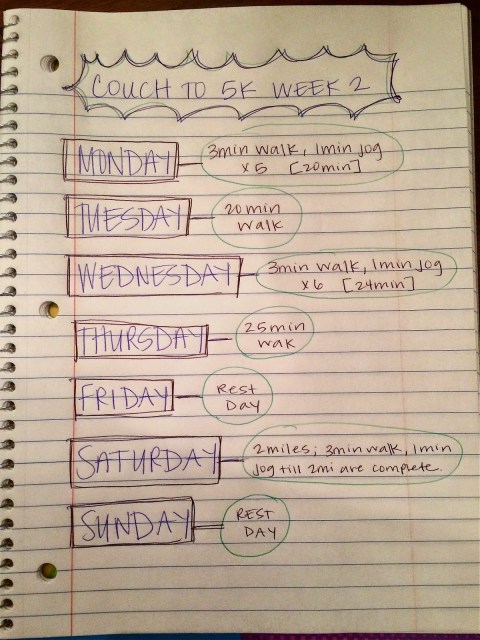 COUCH TO 5K WEEK 2
MONDAY
3min walk, 1min jog
x5 [20min]
TUESDAY
20min
walk
WEDNESDAY
3min walk, 1min jog
x6 [24min]
THURSDAY
25min
wak
FRIDAY
REST
DAY
SATURDAY
2miles; 3min walk, 1min
jog till 2mi are complete.
SUNDAY
REST
DAY